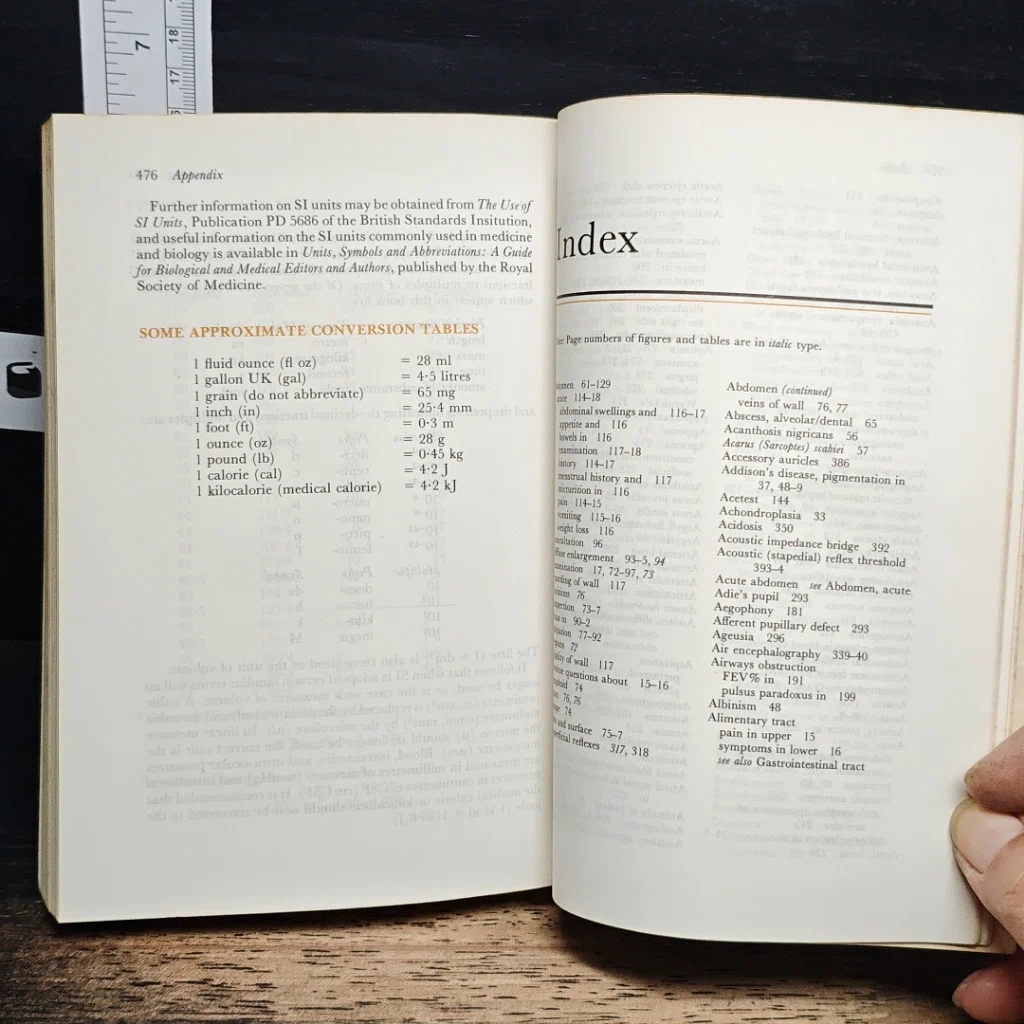 7
18
17
476 Appendix
Further information on SI units may be obtained from The Use of
SI Units, Publication PD 5686 of the British Standards Insitution,
and useful information on the SI units commonly used in medicine
and biology is available in Units, Symbols and Abbreviations: A Guide
for Biological and Medical Editors and Authors, published by the Royal
Society of Medicine.
SOME APPROXIMATE CONVERSION TABLES
1 fluid ounce (fl oz) = 28 ml
1 gallon UK (gal) = 4·5 litres
1 grain (do not abbreviate) = 65 mg
1 inch (in) = 25·4 mm
1 foot (ft) = 0·3 m
1 ounce (oz) = 28 g
1 pound (lb) = 0·45 kg
1 calorie (cal) = 4·2 J
1 kilocalorie (medical calorie) = 4·2 kJ
Index
Page numbers of figures and tables are in italic type.
61–129
114–18
abdominal swellings and 116–17
appetite and 116
bowels in 116
examination 117–18
history 114–17
menstrual history and 117
micturition in 116
pain 114–15
vomiting 115–16
weight loss 116
96
enlargement 93–5, 94
17, 72–97, 73
of wall 117
76
73–7
in 90–2
77–92
72
of wall 117
questions about 15–16
74
76, 76
74
and surface 75–7
reflexes 317, 318
Abdomen (continued)
veins of wall 76, 77
Abscess, alveolar/dental 65
Acanthosis nigricans 56
Acarus (Sarcoptes) scabiei 57
Accessory auricles 386
Addison's disease, pigmentation in
37, 48–9
Acetest 144
Achondroplasia 33
Acidosis 350
Acoustic impedance bridge 392
Acoustic (stapedial) reflex threshold
393–4
Acute abdomen see Abdomen, acute
Adie's pupil 293
Aegophony 181
Afferent pupillary defect 293
Ageusia 296
Air encephalography 339–40
Airways obstruction
FEV% in 191
pulsus paradoxus in 199
Albinism 48
Alimentary tract
pain in upper 15
symptoms in lower 16
see also Gastrointestinal tract